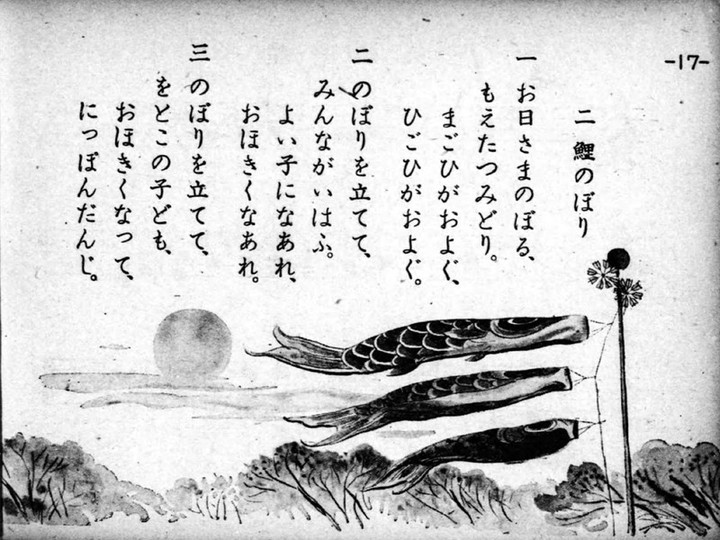 -17-
二 鯉のぼり
一 お日さまのぼる、
もえたつみどり。
まごひがおよぐ、
ひごひがおよぐ。
二 のぼりを立てて、
みんながいはふ。
よい子になあれ、
おほきくなあれ。
三 のぼりを立てて、
をとこの子ども、
おほきくなって、
にっぽんだんじ。